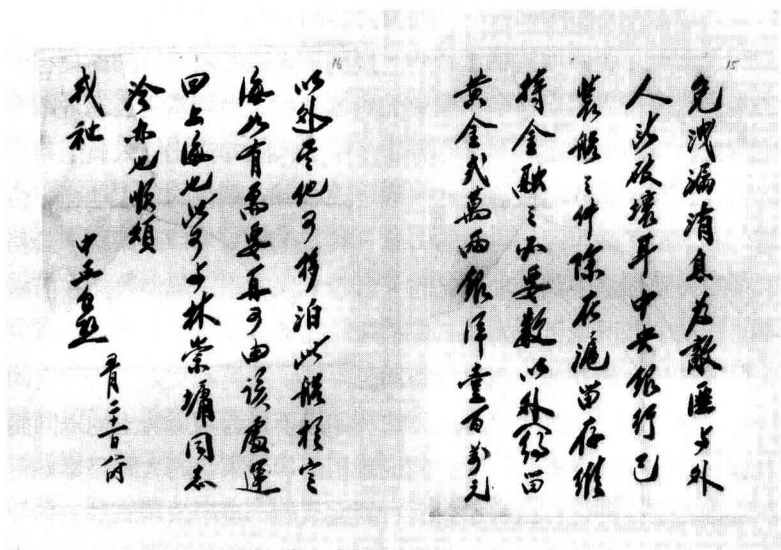 15
免洩漏消息為敵匪与外
人所破壞耳中央銀行已
裝船之件除在滬留存維
持金融之必要數以外約留
黃金弍萬兩銀洋壹百萬元
16
以外其他可移泊此船於定
海如有需要再可由該處運
回上海也此可与林崇墉同志
洽办也順頌
戎祉
中正
五月